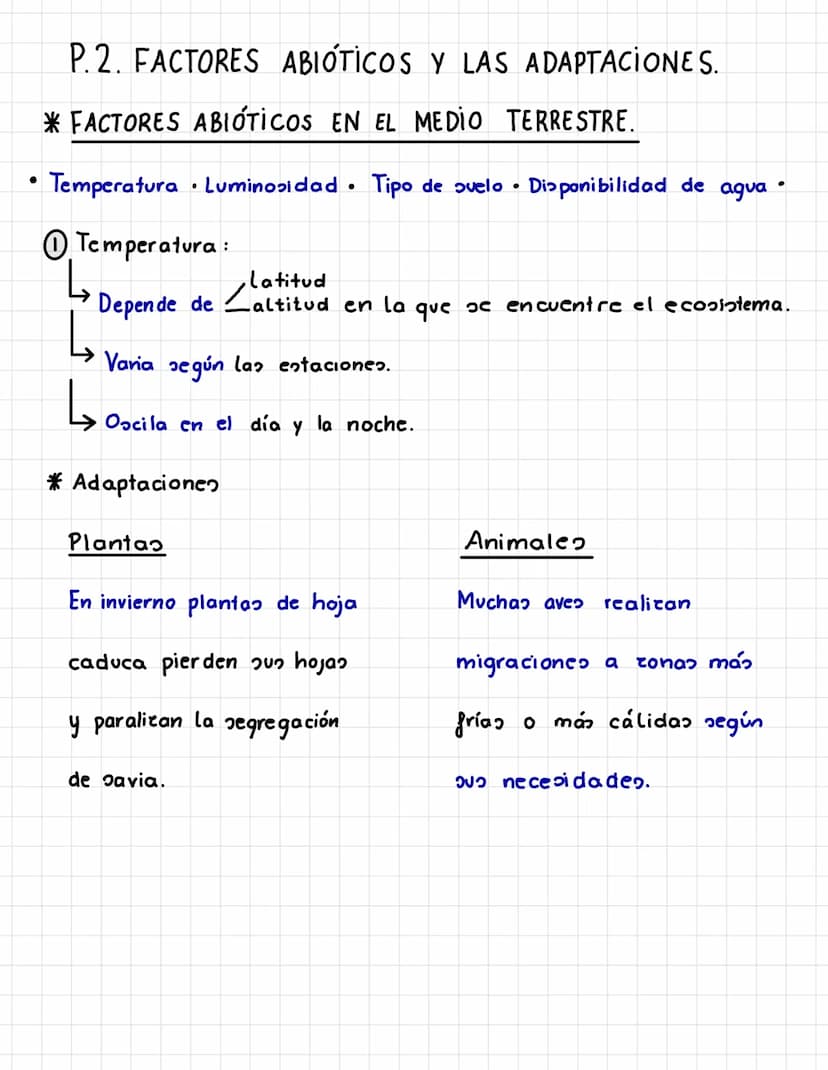 P.2. FACTORES ABIÓTICOS Y LAS ADAPTACIONES.
* FACTORES ABIÓTICOS EN EL MEDIO TERRESTRE.
• Temperatura • Luminosidad • Tipo de suelo • Disponibilidad de agua •
① Temperatura:
latitud
↳ Depende de altitud en la que se encuentre el ecosistema.
↳ Varia según las estaciones.
↳ Oscila en el día y la noche.
* Adaptaciones
Plantas
En invierno plantas de hoja
caduca pierden sus hojas
y paralizan la segregación
de savia.
Animales
Muchas aves realizan
migraciones a zonas más
frías o más cálidas según
sus necesidades.